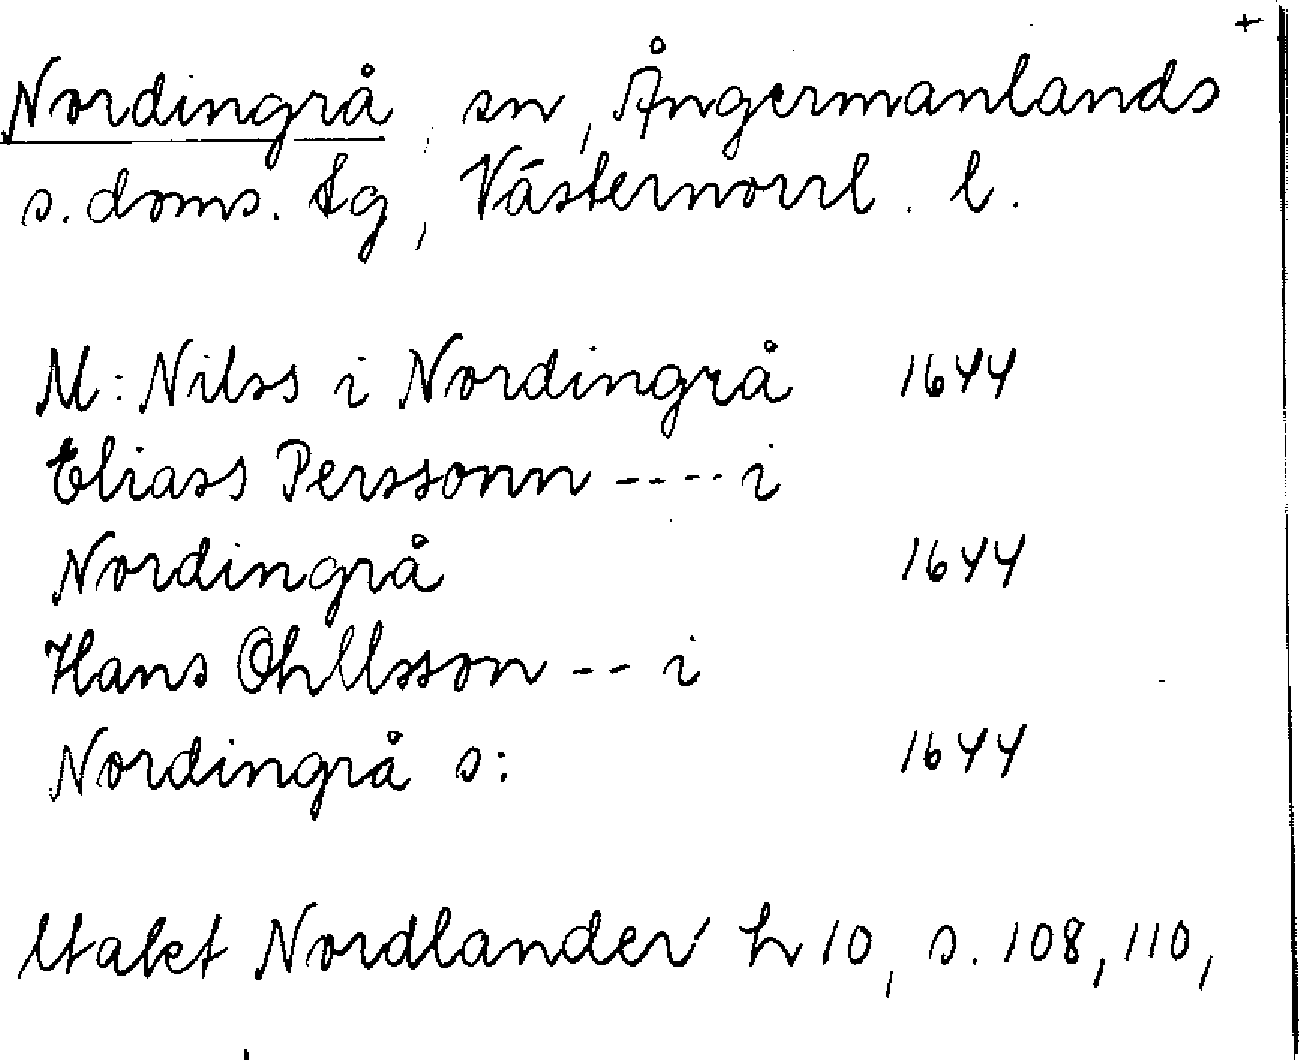 +
Nordingrå, sn, Ångermanlands
s. doms. tg, Västernorrl. l.
M: Nilss i Nordingrå 1644
Eliass Perssonn ---- i
Nordingrå 1644
Hans Ohllsson -- i
Nordingrå s: 1644
Utakt Nordlander h 10, s. 108, 110,